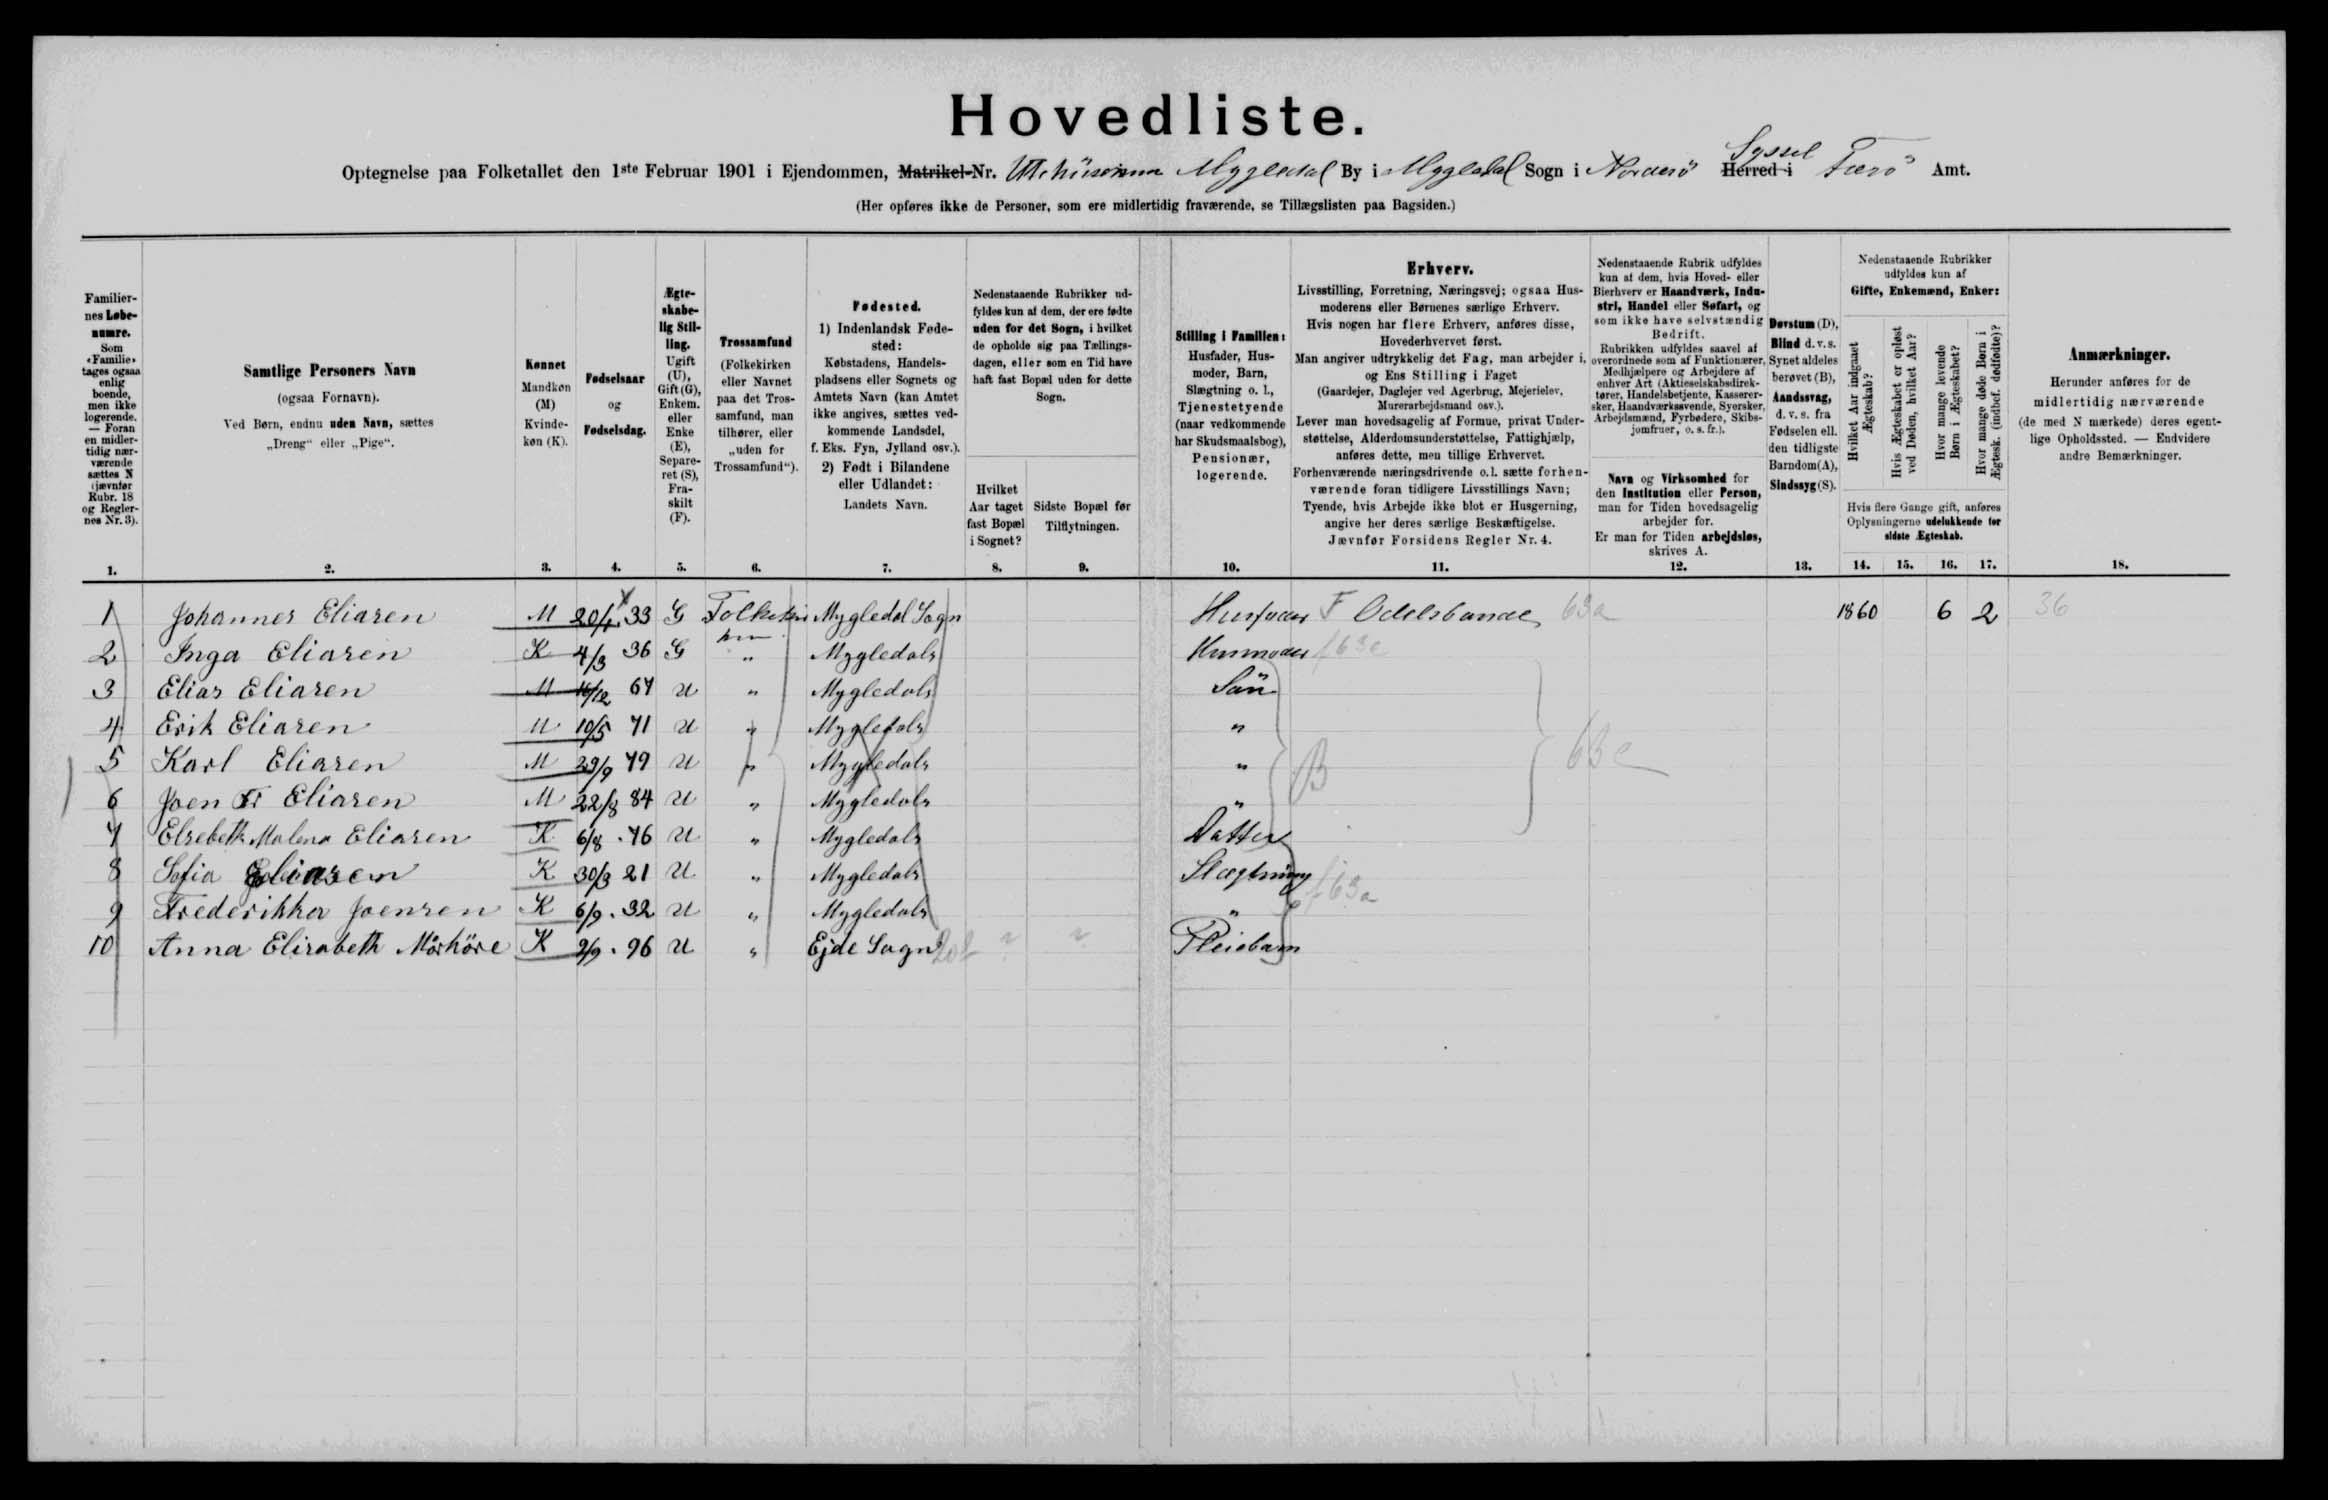 Hovedliste.
Optegnelse paa Folketallet den 1ste Februar 1901 i Ejendommen, Matrikel-Nr. Mygledal By i Mygledal Sogn i Norderö Herred i Syssel Færö Amt.
(Her opføres ikke de Personer, som ere midlertidig fraværende, se Tillægslisten paa Bagsiden.)
Familiernes Løbenumre. Som «Familie» tages ogsaa enlig boende, men ikke logerende. — Foran en midlertidig nærværende sættes N (jævnfør Rubr. 18 og Reglernes Nr. 3).
Samtlige Personers Navn (ogsaa Fornavn). Ved Børn, endnu uden Navn, sættes „Dreng“ eller „Pige“.
Kønnet Mandkøn (M) Kvindekøn (K).
Fødselsaar og Fødselsdag.
Ægteskabelig Stilling. Ugift (U), Gift (G), Enkem. eller Enke (E), Separeret (S), Fraskilt (F).
Trossamfund (Folkekirken eller Navnet paa det Trossamfund, man tilhører, eller „uden for Trossamfund“).
Fødested. 1) Indenlandsk Fødested: Købstadens, Handelspladsens eller Sognets og Amtets Navn (kan Amtet ikke angives, sættes vedkommende Landsdel, f. Eks. Fyn, Jylland osv.). 2) Født i Bilandene eller Udlandet: Landets Navn.
Nedenstaaende Rubrikker udfyldes kun af dem, der ere fødte uden for det Sogn, i hvilket de opholde sig paa Tællingsdagen, eller som en Tid have haft fast Bopæl uden for dette Sogn.
Hvilket Aar taget fast Bopæl i Sognet?
Sidste Bopæl før Tilflytningen.
Stilling i Familien: Husfader, Husmoder, Barn, Slægtning o. l., Tjenestetyende (naar vedkommende har Skudsmaalsbog), Pensionær, logerende.
Erhverv.
Livsstilling, Forretning, Næringsvej; ogsaa Husmoderens eller Børnenes særlige Erhverv.
Hvis nogen har flere Erhverv, anføres disse, Hovederhvervet først.
Man angiver udtrykkelig det Fag, man arbejder i, og Ens Stilling i Faget
(Gaardejer, Daglejer ved Agerbrug, Mejerielev, Murerarbejdsmand osv.).
Lever man hovedsagelig af Formue, privat Understøttelse, Alderdomsunderstøttelse, Fattighjælp, anføres dette, men tillige Erhvervet.
Forhenværende næringsdrivende o. l. sætte forhenværende foran tidligere Livsstillings Navn;
Tyende, hvis Arbejde ikke blot er Husgerning, angive her deres særlige Beskæftigelse.
Jævnfør Forsidens Regler Nr. 4.
Nedenstaaende Rubrik udfyldes kun af dem, hvis Hoved- eller Bierhverv er Haandværk, Industri, Handel eller Søfart, og som ikke have selvstændig Bedrift.
Rubrikken udfyldes saavel af overordnede som af Funktionærer, Medhjælpere og Arbejdere af enhver Art (Aktieselskabsdirektører, Handelsbetjente, Kasserersker, Haandværkssvende, Syersker, Arbejdsmænd, Fyrbødere, Skibsjomfruer, o. s. fr.).
Navn og Virksomhed for den Institution eller Person, man for Tiden hovedsagelig arbejder for.
Er man for Tiden arbejdsløs, skrives A.
Døvstum (D), Blind d. v. s. Synet aldeles berøvet (B), Aandssvag, d. v. s. fra Fødselen ell. den tidligste Barndom (A), Sindssyg (S).
Nedenstaaende Rubrikker udfyldes kun af Gifte, Enkemænd, Enker:
Hvilket Aar indgaaet Ægteskab?
Hvis Ægteskabet er opløst ved Døden, hvilket Aar?
Hvor mange levende Børn i Ægteskabet?
Hvor mange døde Børn i Ægtesk. (indbef. dødfødte)?
Hvis flere Gange gift, anføres Oplysningerne udelukkende for sidste Ægteskab.
Anmærkninger. Herunder anføres for de midlertidig nærværende (de med N mærkede) deres egentlige Opholdssted. — Endvidere andre Bemærkninger.
1. 2. 3. 4. 5. 6. 7. 8. 9. 10. 11. 12. 13. 14. 15. 16. 17. 18.
1 Johannes Eliasen M 20/4 33 G Folkekirken Mygledal Sogn Husfader F Odelsbonde 63a 1860 6 2 36
2 Inga Eliasen K 4/3 36 G " Mygledals Husmoder f63a
3 Elias Eliasen M 67 U " Mygledals Sön
4 Erik Eliasen M 10/5 71 U " Mygledals "
5 Karl Eliasen M 29/9 79 U " Mygledals " B 63c
6 Joen Fr Eliasen M 22/8 84 U " Mygledals "
7 Elsebeth Malena Eliasen K 6/8 . 76 U " Mygledals Datter
8 Sofia Eliasen K 30/3 21 U " Mygledals Slægtning
9 Frederikka Joensen K 6/9 . 32 U " Mygledals " f63a
10 Anna Elisabeth Mörköre K 9/9 . 96 U " Ejde Sogn ? ? Pleiebarn